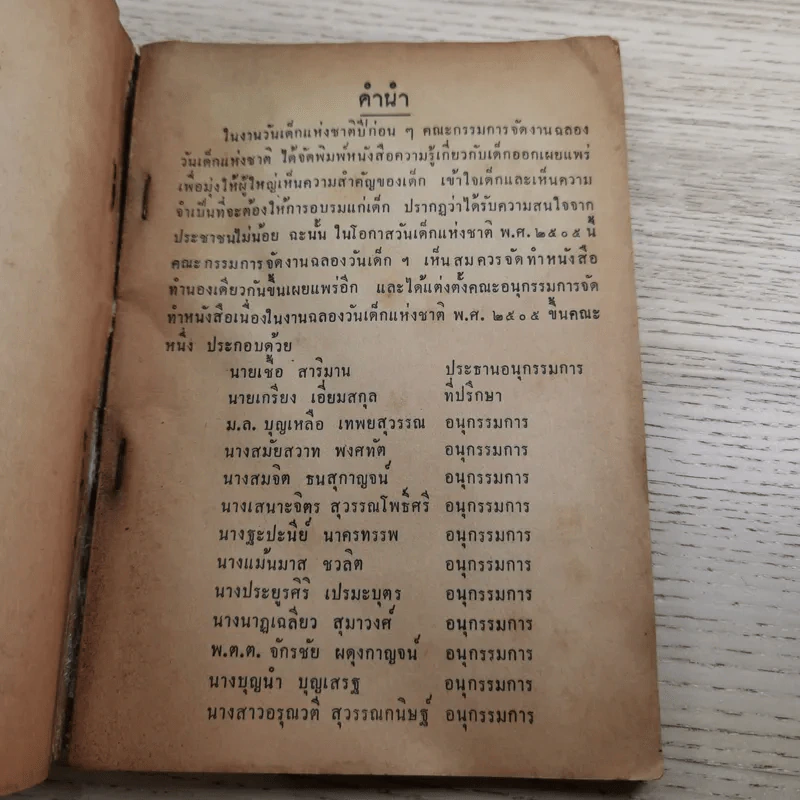 คำนำ
ในงานวันเด็กแห่งชาติปีก่อน ๆ คณะกรรมการจัดงานฉลอง
วันเด็กแห่งชาติ ได้จัดพิมพ์หนังสือความรู้เกี่ยวกับเด็กออกเผยแพร่
เพื่อมุ่งให้ผู้ใหญ่เห็นความสำคัญของเด็ก เข้าใจเด็กและเห็นความ
จำเป็นที่จะต้องให้การอบรมแก่เด็ก ปรากฏว่าได้รับความสนใจจาก
ประชาชนไม่น้อย ฉะนั้น ในโอกาสวันเด็กแห่งชาติ พ.ศ. ๒๕๐๕ นี้
คณะกรรมการจัดงานฉลองวันเด็ก ฯ เห็นสมควรจัดทำหนังสือ
ทำนองเดียวกันขึ้นเผยแพร่อีก และได้แต่งตั้งคณะอนุกรรมการจัด
ทำหนังสือเนื่องในงานฉลองวันเด็กแห่งชาติ พ.ศ. ๒๕๐๕ ขึ้นคณะ
หนึ่ง ประกอบด้วย
นายเชื้อ สาริมาน ประธานอนุกรรมการ
นายเกรียง เอี่ยมสกุล ที่ปรึกษา
ม.ล. บุญเหลือ เทพยสุวรรณ อนุกรรมการ
นางสมัยสวาท พงศทัต อนุกรรมการ
นางสมจิต ธนสุกาญจน์ อนุกรรมการ
นางเสนาะจิตร สุวรรณโพธิ์ศรี อนุกรรมการ
นางฐะปะนีย์ นาครทรรพ อนุกรรมการ
นางแม้นมาส ชวลิต อนุกรรมการ
นางประยูรศิริ เปรมะบุตร อนุกรรมการ
นางนาฏเฉลียว สุมาวงศ์ อนุกรรมการ
พ.ต.ต. จักรชัย ผดุงกาญจน์ อนุกรรมการ
นางบุญนำ บุญเสรฐ อนุกรรมการ
นางสาวอรุณวตี สุวรรณกนิษฐ์ อนุกรรมการ